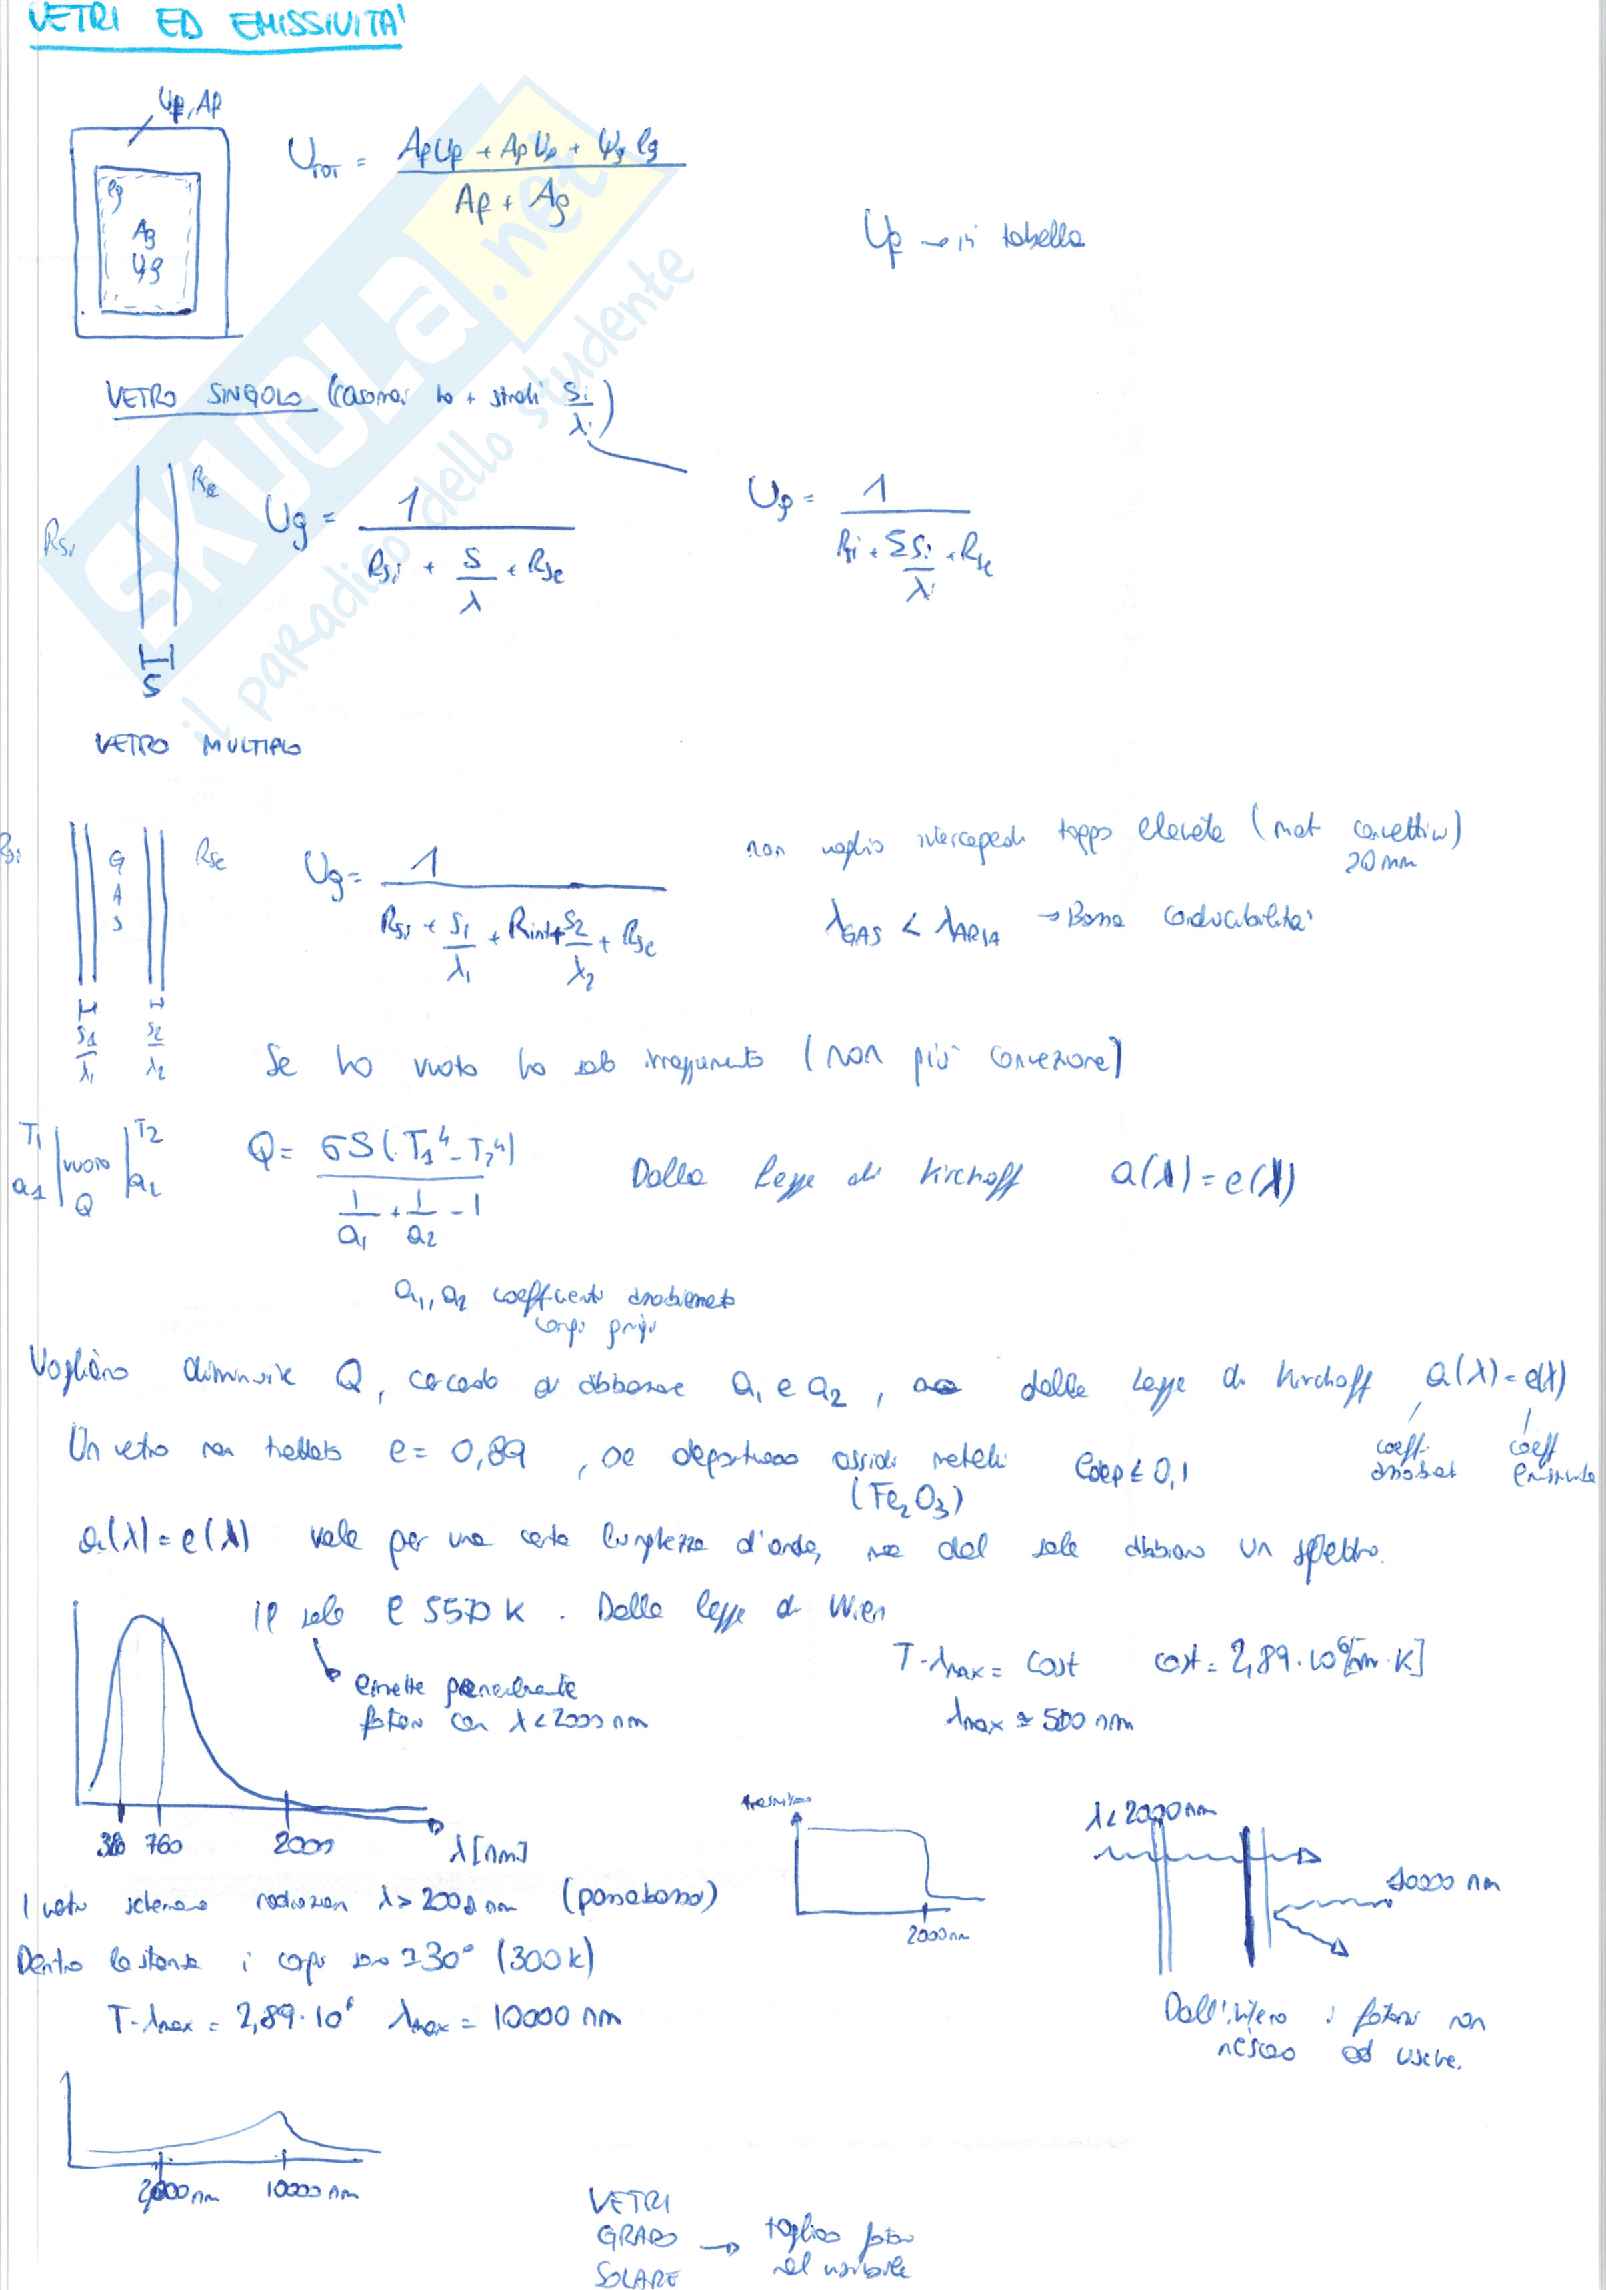 VETRI ED EMISSIVITA'
Uf, Af
lg
Ag
Ug
U_TOT = (Af Uf + Af Uf + Ψg lg) / (Af + Ag)
Uf → in tabella
VETRO SINGOLO ( ho + strati Si/λi)
Rsi
Rse
S
Ug = 1 / (Rsi + S/λ + Rse)
Ug = 1 / (Rsi + ΣSi/λi + Rse)
VETRO MULTIPLO
Rsi
GAS
Rse
S1/λ1
S2/λ2
Ug = 1 / (Rsi + S1/λ1 + Rint + S2/λ2 + Rse)
non voglio intercapedi troppo elevate (mot convettivi)
20 mm
λGAS < λARIA → Bassa conducibilita'
Se ho vuoto ho solo irraggiamento (non più convezione)
T1
a1
vuoto
Q
T2
a2
Q = σS(T1⁴ - T2⁴) / (1/a1 + 1/a2 - 1)
Dalla legge di Kirchoff a(λ) = e(λ)
a1, a2 coefficienti assorbimento
corpi grigi
Vogliamo diminuire Q, cercado di abbassare a1 e a2, dalla legge di Kirchoff a(λ) = e(λ)
coeff. assorbat
coeff emissivita
Un vetro non trattato e = 0,89, se depositiamo ossidi metalli edep ≤ 0,1
(Fe2O3)
a(λ) = e(λ) vale per una certa lunghezza d'onda, ma dal sole abbiamo un spettro.
Il sole e 5570 K. Dalla legge di Wien
emette prevalentemente
fotoni con λ < 2000 nm
T·λmax = cost cost = 2,89·10⁶ [nm·K]
λmax ≅ 500 nm
380 760 2000 λ [nm]
2000 nm
λ < 2000 nm
10000 nm
I vetri schermano radiazioni λ > 2000 nm (passabasso)
Dentro la stanza i corpi sono ≅ 30° (300 K)
T·λmax = 2,89·10⁶ λmax = 10000 nm
Dall'interno i fotoni non
riescono ad uscire.
2000 nm 10000 nm
VETRI
GRADO → togliamo fotoni
SOLARE nel visibile
SKUOLA.net
il paradiso dello studente